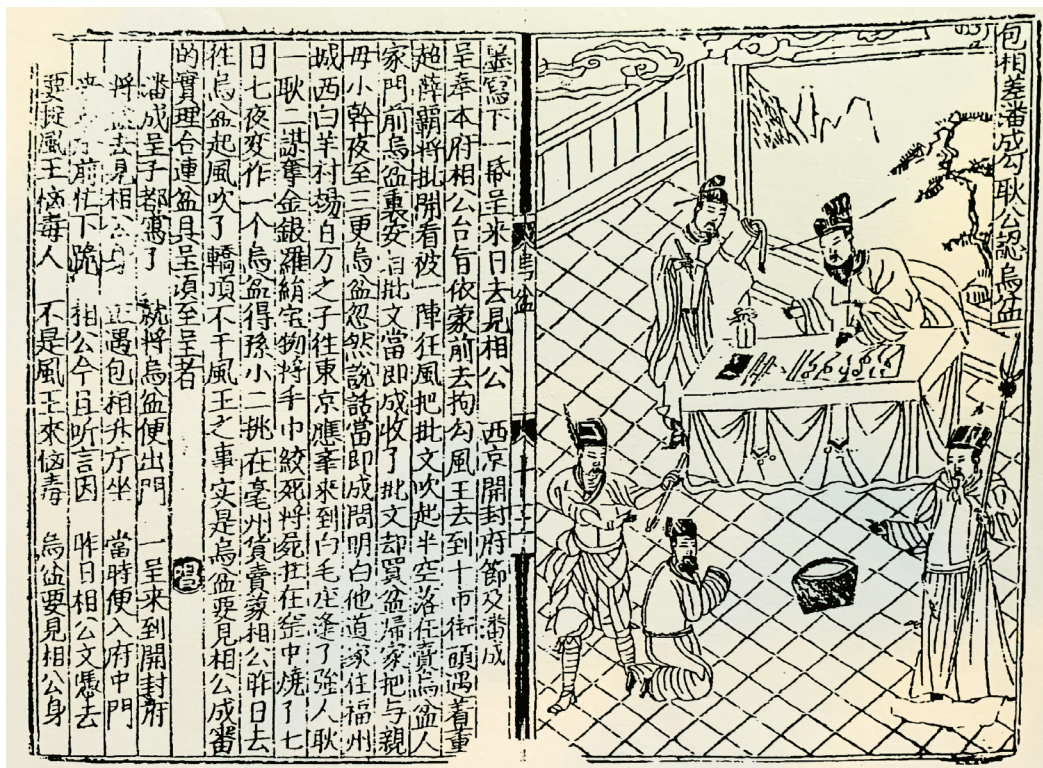 包相差潘成勾耿公認烏盆
烏盆
墨寫下一帋呈來日去見相公 西京開封府節及潘成
呈奉本府相公台旨依蒙前去拘勾風王去到十市街頭遇着董
超薛霸將批開看被一陣狂風把批文吹起半空落在賣烏盆人
家門前烏盆裏安自批文當即成收了批文却買盆歸家把与親
毋小幹夜至三更烏盆忽然說話當即成問明白他道家住福州
城西白羊村塲白万之子徃東京應峯來到白毛空逢了強人耿
一耿二謀奪金銀羅絹宝物將手巾絞死將屍扛在窑中燒了七
日七夜变作一个烏盆得孫小二挑在毫州貨賣蒙相公昨日去
徃烏盆起風吹了轎項不干風王之事实是烏盆要見相公成審
的實理合連盆具呈湏至呈者
唱
潘成呈子都寫了 就將烏盆便出門 一呈來到開封府
將 去見相公身 遇包相升庁坐 當時便入府中門
前忙下跪 相公今且听言因 昨日相公文憑去
要捉風王惱毒人 不是風王來惱毒 烏盆要見相公身